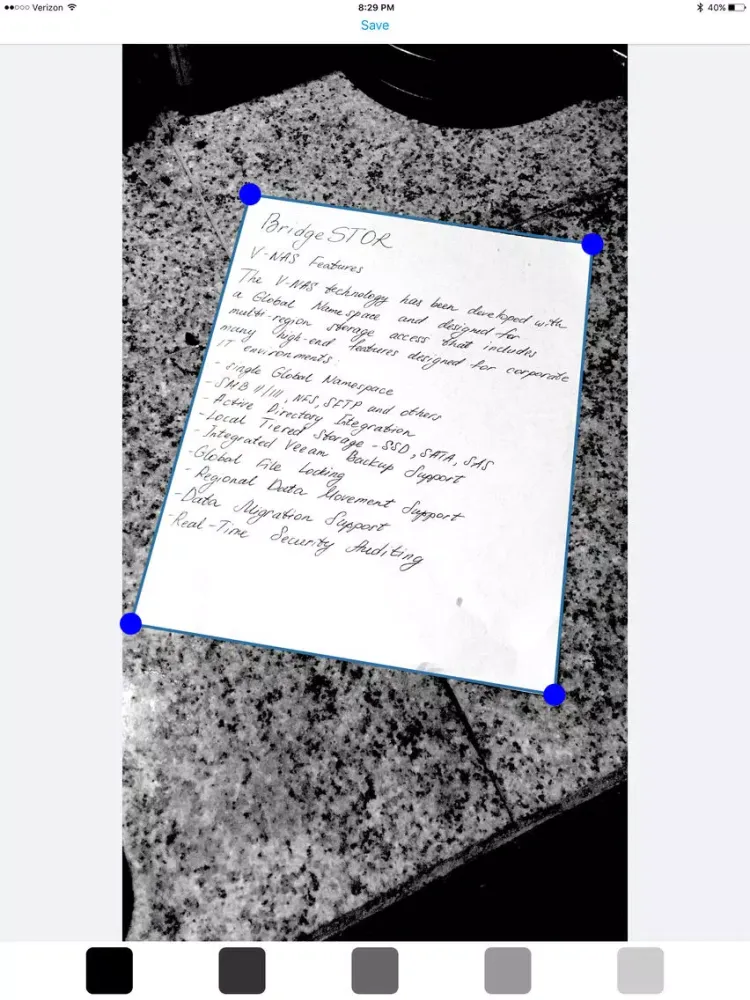 Verizon 8:29 PM 40%
Save
BridgeSTOR
V-NAS Features
The V-NAS technology has been developed with
a Global Namespace and designed for
multi-region storage access that includes
many high-end features designed for corporate
IT environments:
- Single Global Namespace
- SMB II/III, NFS, SFTP and others
- Active Directory Integration
- Local Tiered Storage - SSD, SATA, SAS
- Integrated Veeam Backup Support
- Global File Locking
- Regional Data Movement Support
- Data Migration Support
- Real-Time Security Auditing